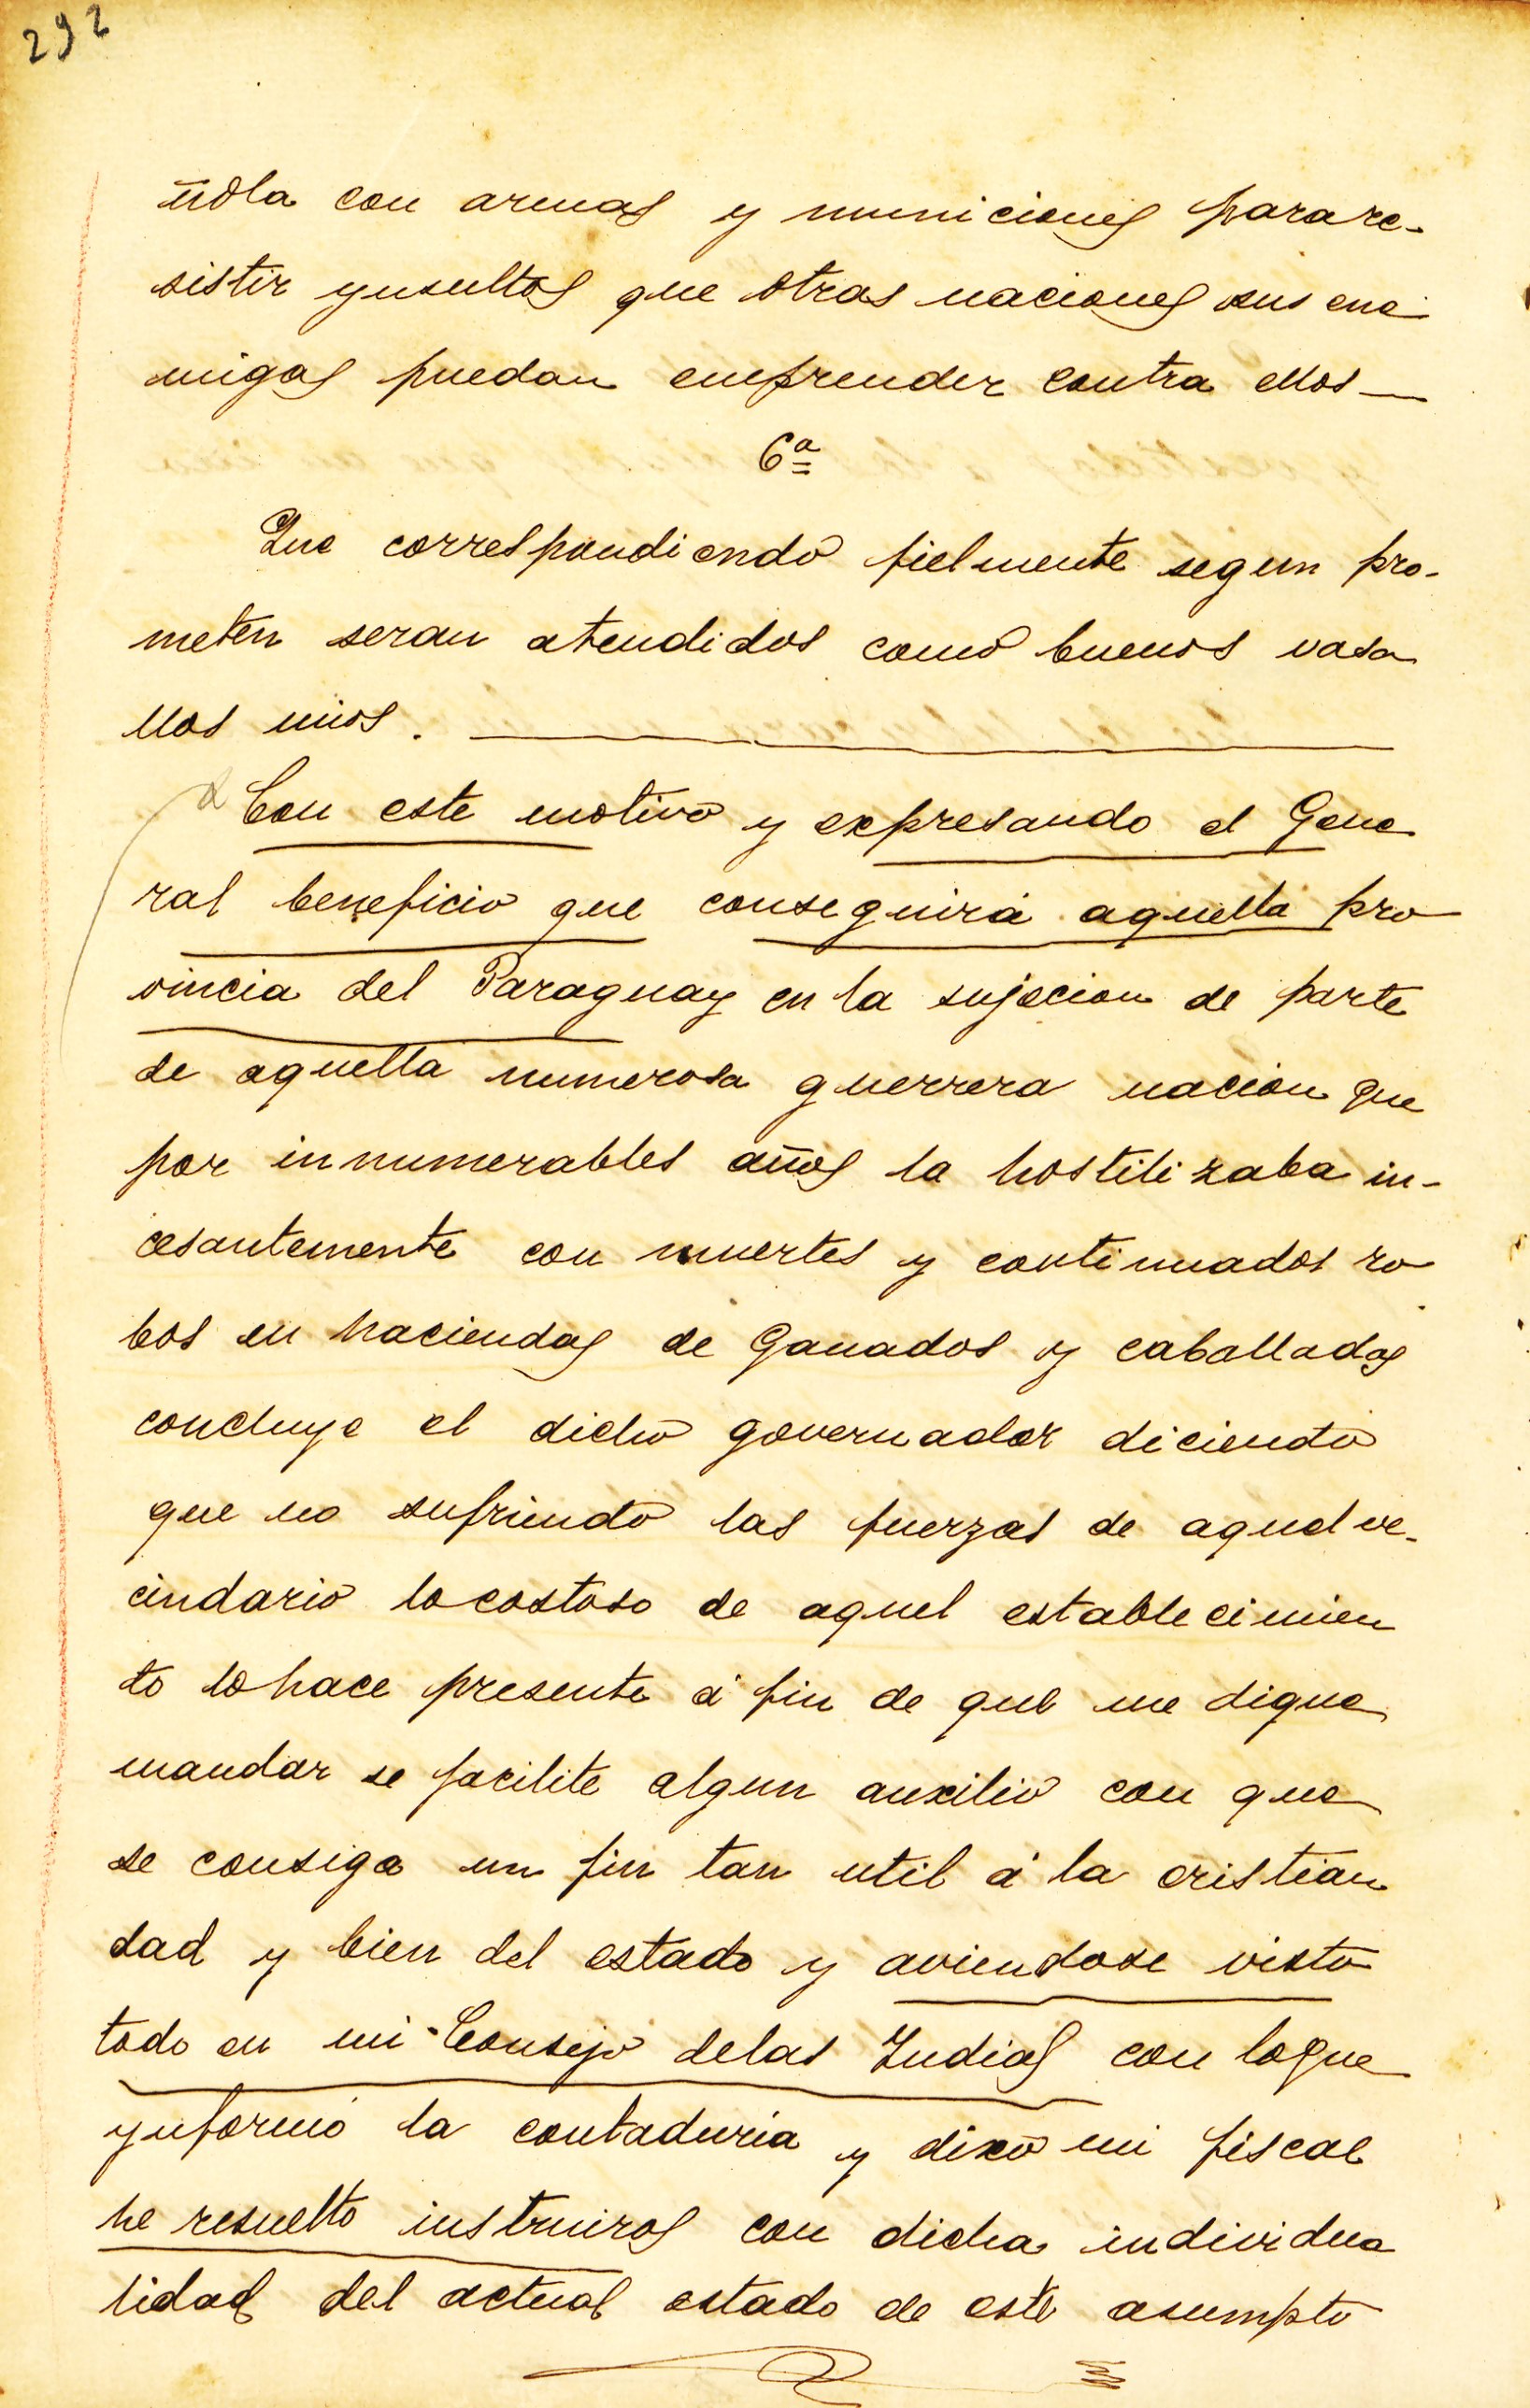 292
ñola con armas y municiones para re-
sistir ynsultos que otras naciones sus ene
migas puedan emprender contra ellos —
6ª
Que correspondiendo fielmente segun pro-
meten seran atendidos como buenos vasa
llos mios. —
Con este motivo y expresando el Gene
ral beneficio que conseguirá aquella pro
vincia del Paraguay en la sujecion de parte
de aquella numerosa guerrera nacion que
por innumerables años la hostilizaba in-
cesantemente con muertes y continuados ro
bos en haciendas de Ganados y caballadas
concluye el dicho governador diciendo
que no sufriendo las fuerzas de aquel ve-
cindario lo costoso de aquel establecimien
to lo hace presente á fin de que me digne
mandar se facilite algun auxilio con que
se consiga un fin tan util á la cristian
dad y bien del estado y aviendose visto
todo en mi Consejo delas Yndias con loque
ynformó la contaduria y dixo mi fiscal
he resuelto instruiros con dicha individua
lidad del actual estado de este asumpto